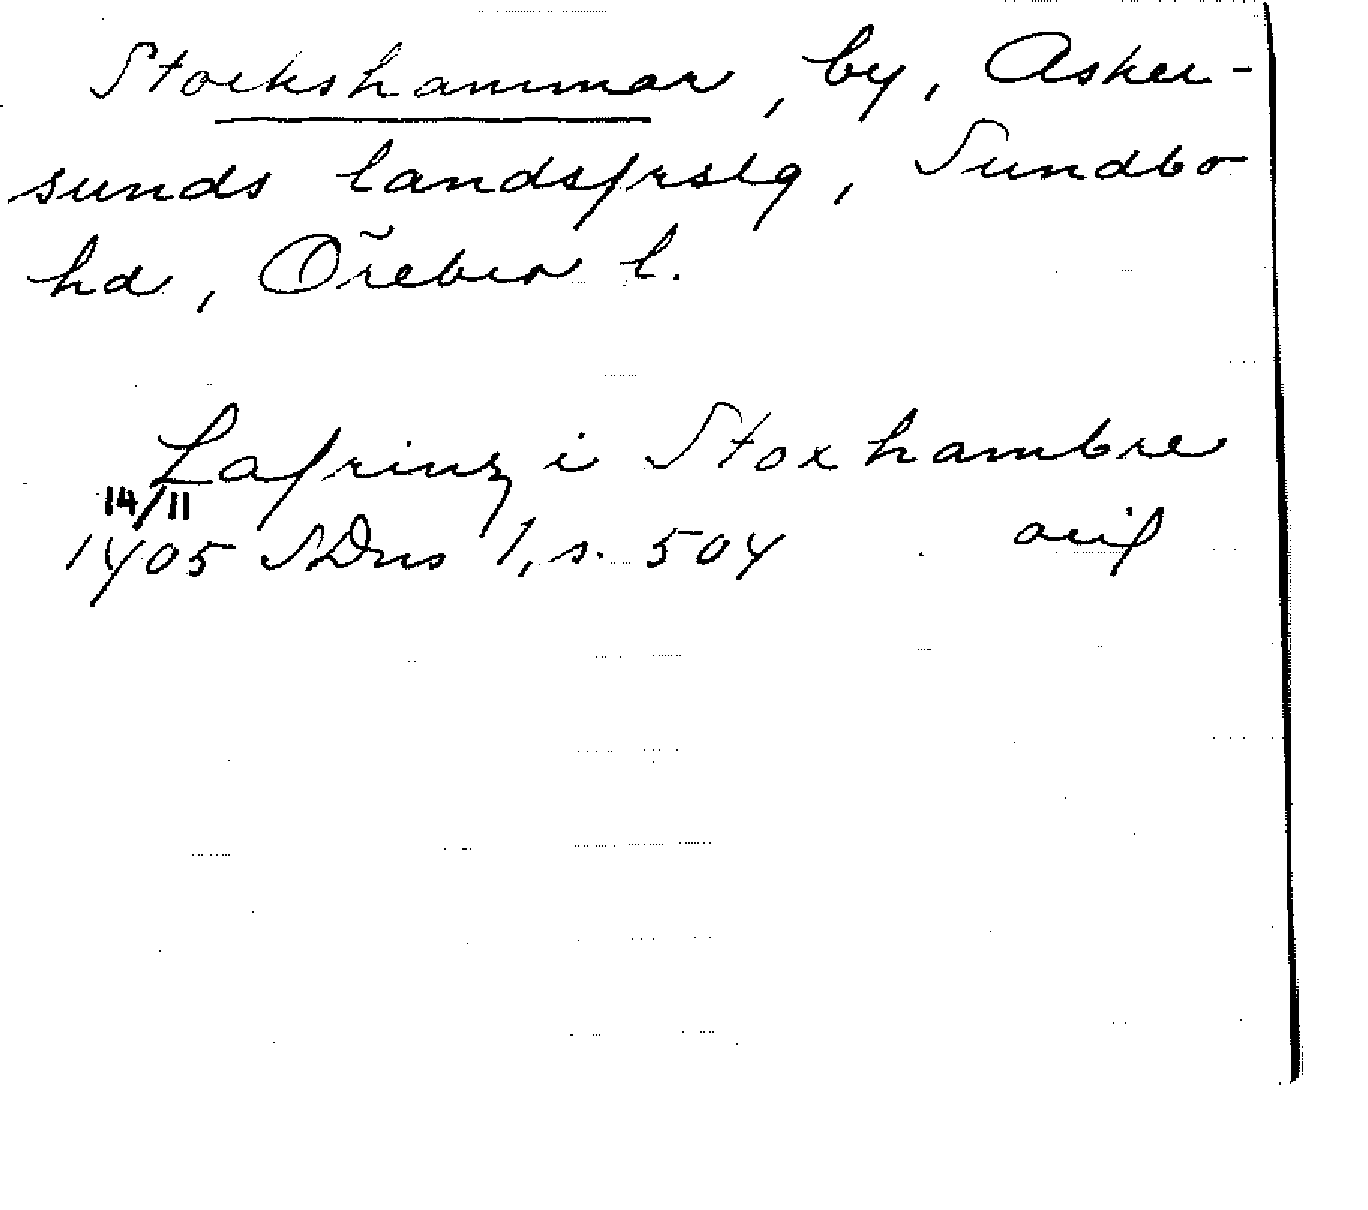 Stockshammar, by, Asker-
sunds landsfrslg, Sundbo
hd, Örebro l.
Lafrinz i Stoxhambre
14/11
1405 SDns 1, s. 504 avif